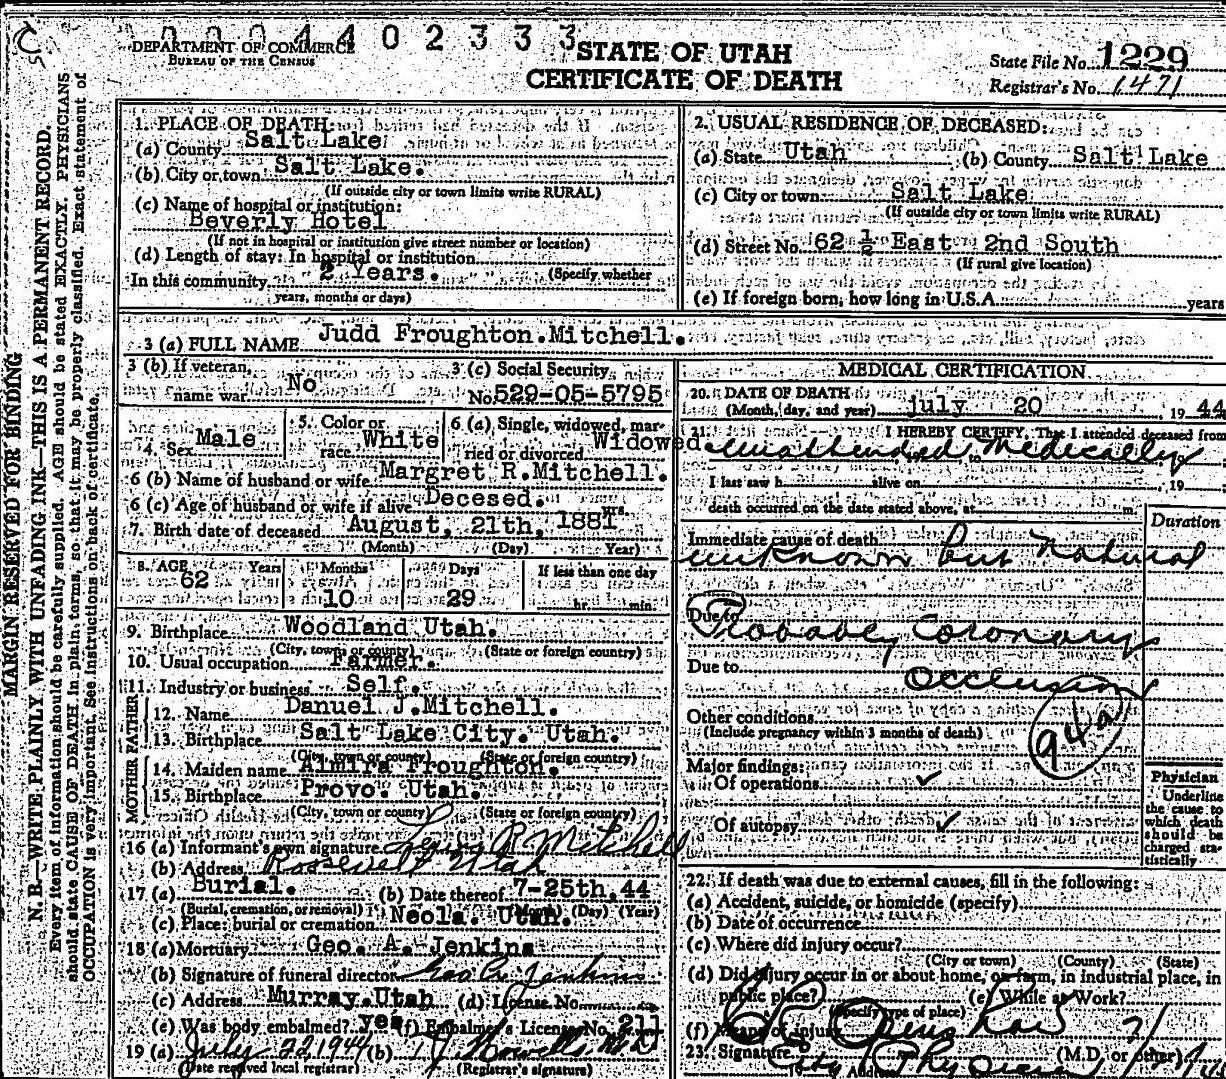 0004402333
DEPARTMENT OF COMMERCE
BUREAU OF THE CENSUS
STATE OF UTAH
CERTIFICATE OF DEATH
State File No. 1229
Registrar's No. 1471
MARGIN RESERVED FOR BINDING
N. B.—WRITE PLAINLY WITH UNFADING INK—THIS IS A PERMANENT RECORD.
Every item of information should be carefully supplied. AGE should be stated EXACTLY. PHYSICIANS
should state CAUSE OF DEATH in plain terms, so that it may be properly classified. Exact statement of
OCCUPATION is very important. See instructions on back of certificate.
1. PLACE OF DEATH:
(a) County Salt Lake
(b) City or town Salt Lake.
(If outside city or town limits write RURAL)
(c) Name of hospital or institution:
Beverly Hotel
(If not in hospital or institution give street number or location)
(d) Length of stay: In hospital or institution
In this community 2 Years. (Specify whether
years, months or days)
2. USUAL RESIDENCE OF DECEASED:
(a) State Utah (b) County Salt Lake
(c) City or town Salt Lake
(If outside city or town limits write RURAL)
(d) Street No. 62 ½ East 2nd South
(If rural give location)
(e) If foreign born, how long in U.S.A. years
3 (a) FULL NAME Judd Froughton.Mitchell.
3 (b) If veteran, name war No
3 (c) Social Security No. 529-05-5795
4. Sex Male
5. Color or race White
6 (a) Single, widowed, married or divorced Widowed
6 (b) Name of husband or wife Margret R.Mitchell.
6 (c) Age of husband or wife if alive Decesed. yrs.
7. Birth date of deceased August, 21th, 1881
(Month) (Day) Year)
8. AGE Years Months Days If less than one day
62 10 29 hr. min.
9. Birthplace Woodland Utah.
(City, town or county) (State or foreign country)
10. Usual occupation Farmer.
11. Industry or business Self.
FATHER
12. Name Danuel J.Mitchell.
13. Birthplace Salt Lake City. Utah.
(City, town or county) (State or foreign country)
MOTHER
14. Maiden name Almira Froughton.
15. Birthplace Provo. Utah.
(City, town or county) (State or foreign country)
16 (a) Informant's own signature R Mitchell
(b) Address Roosevelt Utah
17 (a) Burial. (b) Date thereof 7-25th, 44
(Burial, cremation, or removal) (Month) (Day) (Year)
(c) Place: burial or cremation Neola. Utah.
18 (a) Mortuary Geo. A. Jenkins
(b) Signature of funeral director Geo A Jenkins
(c) Address Murray.Utah (d) License No.
(e) Was body embalmed? yes (f) Embalmer's License No. 211
19 (a) July 22 1944 (b)
(Date received local registrar) (Registrar's signature)
MEDICAL CERTIFICATION
20. DATE OF DEATH
(Month, day, and year) july 20 1944
21. I HEREBY CERTIFY, That I attended deceased from
unattended Medically
I last saw h alive on , 19
death occurred on the date stated above, at m.
Duration
Immediate cause of death
unknown but natural
Due to
Probably coronary
Due to
occlusion
94a
Other conditions
(Include pregnancy within 3 months of death)
Major findings:
Of operations ✓
Of autopsy ✓
Physician
Underline
the cause to
which death
should be
charged sta-
tistically
22. If death was due to external causes, fill in the following:
(a) Accident, suicide, or homicide (specify)
(b) Date of occurrence
(c) Where did injury occur?
(City or town) (County) (State)
(d) Did injury occur in or about home, on farm, in industrial place, in
public place? (e) While at Work?
(Specify type of place)
(f) Means of injury
23. Signature (M.D. or other)
City Physician
Address